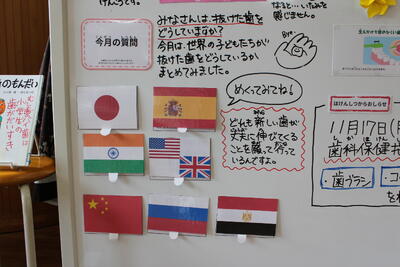 けんこうです。
今月の質問
みなさんは、抜けた歯を
どうしていますか?
今月は、世界の子どもたちが
抜けた歯をどうしているか
まとめてみました。
感じません。
めくってみてね!
どれも新しい歯が
丈夫に伸びてくる
ことを願って行って
いるんですよ。
ほけんしつからおしらせ
11月17日(月
歯科保健
・歯ブラシ
・コ
歯がだいすき